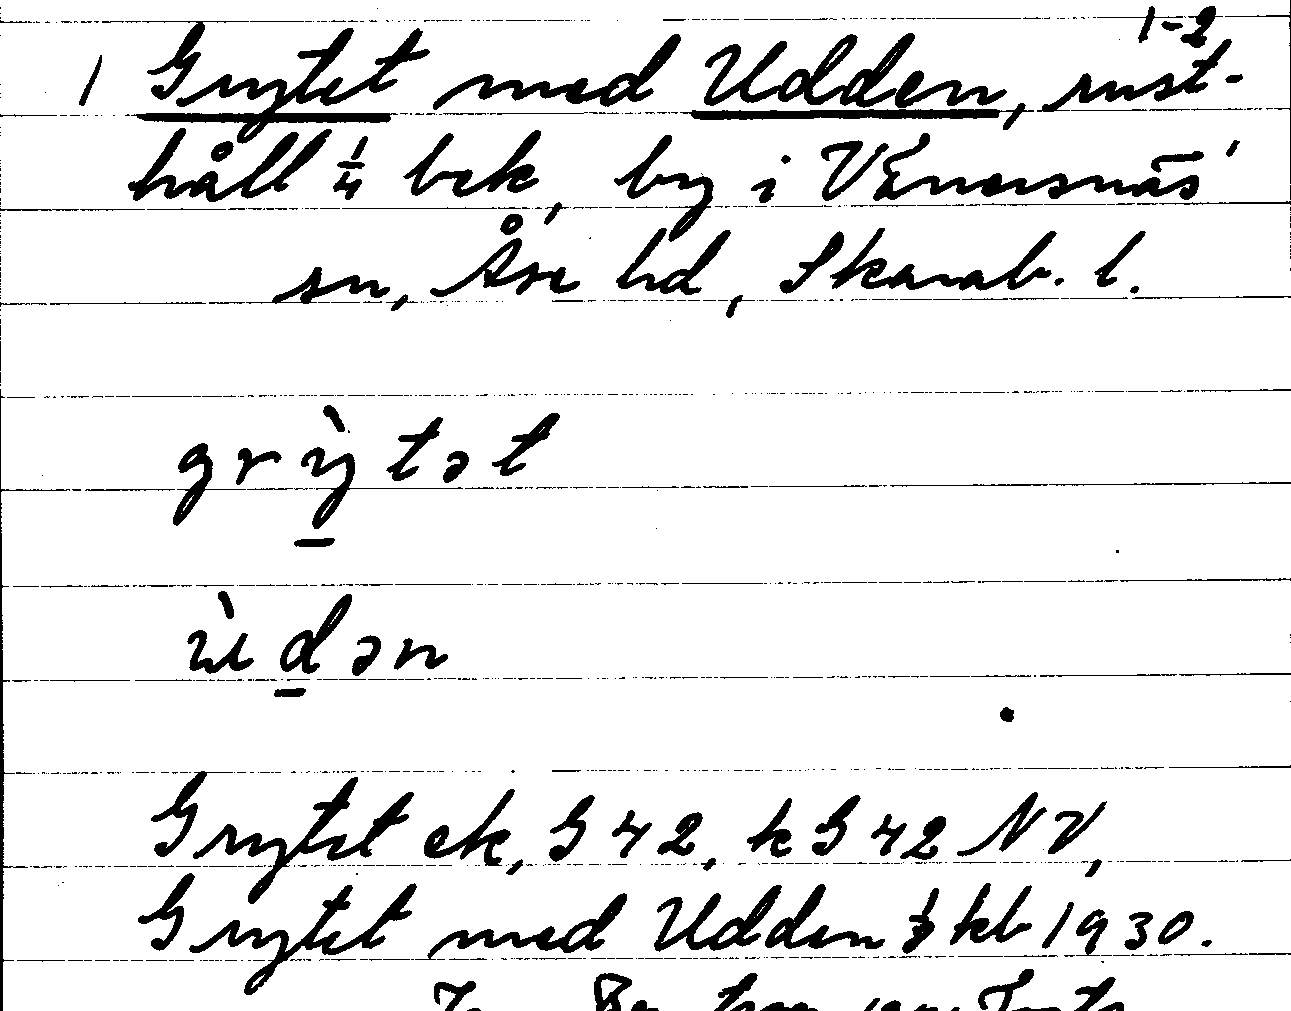 1-2
1 Grytet med Udden, rust-
håll 1/4 bek, by i Vänersnäs'
sn, Åse hd, Skarab. l.
grỳtət
ùdən
Grytet ek, G 42, k G 42 NV,
Grytet med Udden jb kb 1930.